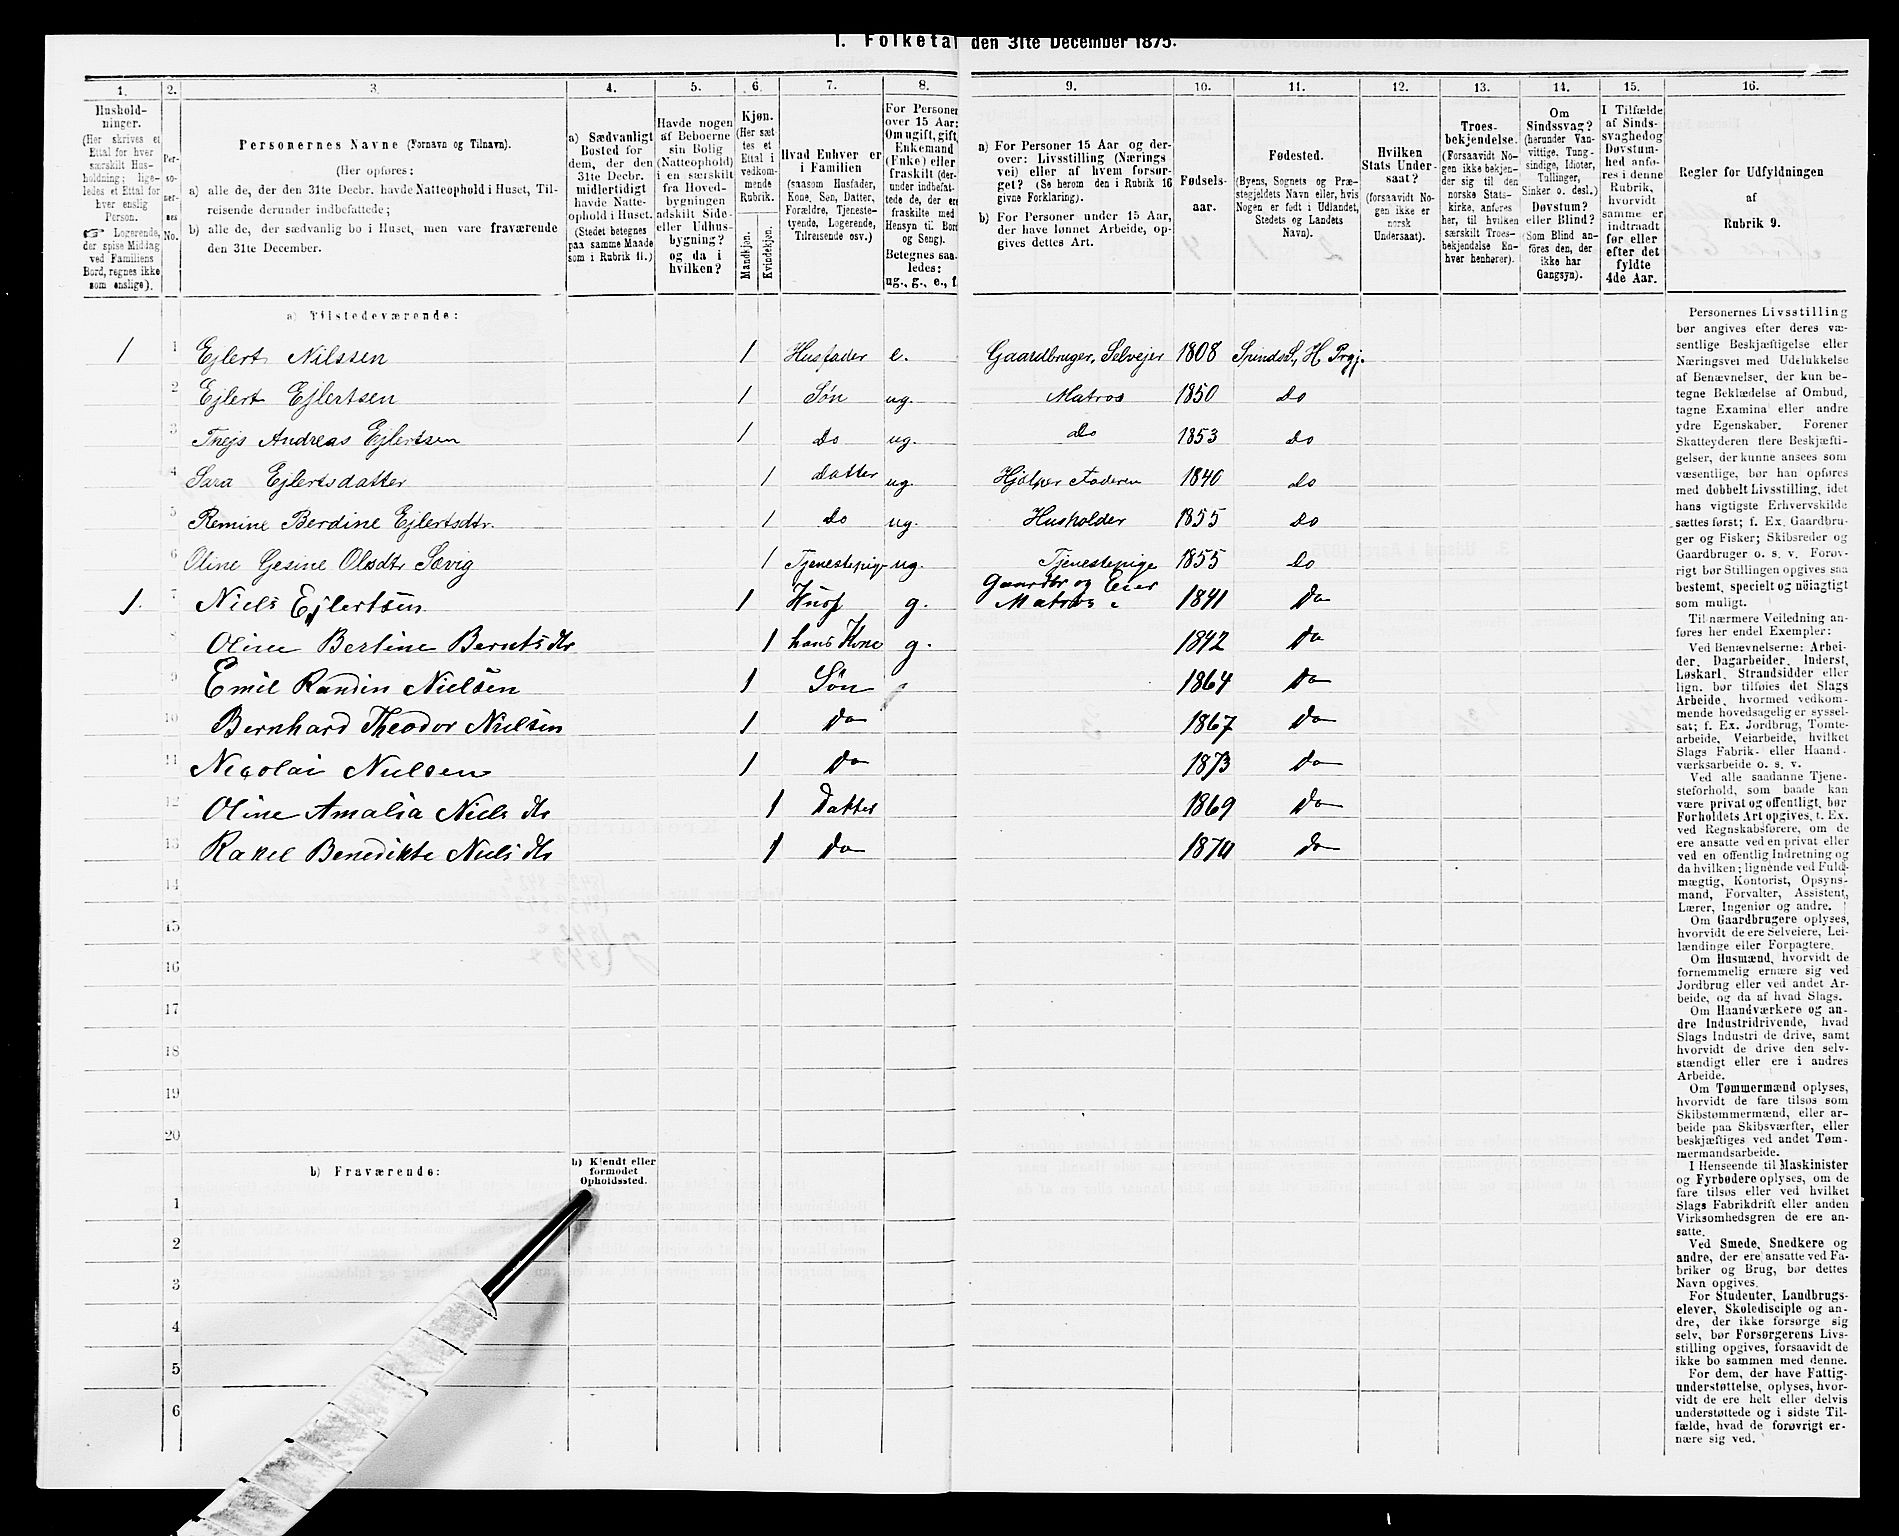 I. Folketal den 31te December 1875.
1. 2. 3. 4. 5. 6. 7. 8. 9. 10. 11. 12. 13. 14. 15. 16.
Hushold-
ninger.
(Her skrives et
Ettal for hver
særskilt Hus-
holdning; lige-
ledes et Ettal for
hver enslig
Person.
☞ Logerende,
der spise Middag
ved Familiens
Bord, regnes ikke
som enslige).
Per-
so-
ner-
nes
No.
Personernes Navne (Fornavn og Tilnavn).
(Her opføres:
a) alle de, der den 31te Decbr. havde Natteophold i Huset, Til-
reisende derunder indbefattede;
b) alle de, der sædvanlig bo i Huset, men vare fraværende
den 31te December.
a) Sædvanligt
Bosted for
dem, der den
31te Decbr.
midlertidigt
havde Natte-
ophold i Huset.
(Stedet betegnes
paa samme Maade
som i Rubrik 11.)
Havde nogen
af Beboerne
sin Bolig
(Natteophold)
i en særskilt
fra Hoved-
bygningen
adskilt Side-
eller Udhus-
bygning?
og da i
hvilken?
Kjøn.
(Her sæt-
tes et
Ettal i
vedkom-
mende
Rubrik.
Mandkjøn.
Kvindekjøn.
Hvad Enhver er
i Familien
(saasom Husfader,
Kone, Søn, Datter,
Forældre, Tjeneste-
tyende, Logerende,
Tilreisende osv.)
For Personer
over 15 Aar:
Om ugift, gift,
Enkemand
(Enke) eller
fraskilt (der-
under indbefat-
tede de, der ere
fraskilte med
Hensyn til Bord
og Seng).
Betegnes saa-
ledes:
ug., g., e., f.
a) For Personer 15 Aar og der-
over: Livsstilling (Nærings
vei) eller af hvem forsør-
get? (Se herom den i Rubrik 16
givne Forklaring).
b) For Personer under 15 Aar,
der have lønnet Arbeide, op-
gives dettes Art.
Fødsels-
aar.
Fødested.
(Byens, Sognets og Præ-
stegjeldets Navn eller, hvis
Nogen er født i Udlandet,
Stedets og Landets
Navn).
Hvilken
Stats Under-
saat?
(forsaavidt No-
gen ikke er
norsk
Undersaat).
Troes-
bekjendelse.
(Forsaavidt No-
gen ikke bekjen-
der sig til den
norske Stats-
kirke, anføres
her, til hvilken
særskilt Troes-
bekjendelse En-
hver henhører).
Om
Sindssvag?
(herunder Van-
vittige, Tung-
sindige, Idioter,
Tullinger,
Sinker o. desl.)
Døvstum?
eller Blind?
(Som Blind an-
føres den, der
ikke har
Gangsyn).
I Tilfælde
af Sinds-
svaghed og
Døvstum-
hed anfø-
res i denne
Rubrik,
hvorvidt
samme er
indtraadt
før eller
efter det
fyldte
4de Aar.
Regler for Udfyldningen
af
Rubrik 9.
a) Tilstedeværende:
1 1 Ejlert Nilssen 1 Husfader e. Gaardbruger, Selvejer 1808 Spinds S., H Prgj.
2 Ejlert Ejlertsen 1 Søn ug. Matros 1850 Do
3 Thejs Andreas Ejlertsen 1 Do ug. Do 1853 Do
4 Sara Ejlertsdatter 1 Datter ug. Hjælper Faderen 1840 Do
5 Remine Berdine Ejlertsdtr. 1 Do ug. Husholder 1855 Do
6 Oline Gesine Olsdtr Sævig 1 Tjenestepige ug. Tjenestepige 1855 Do
1. 7 Niels Ejlertsen 1 Husf g. Gaardbr og Eier Matros 1841 Do
8 Oline Bertine Berntsdtr 1 hans Kone g. 1842 Do
9 Emil Randin Nielsen 1 Søn 1864 Do
10 Bernhard Theodor Nielsen 1 Do 1867 Do
11 Nicolai Nielsen 1 Do 1873 Do
12 Oline Amalia Niels dtr 1 Datter 1869 Do
13 Rakel Benedikte Niels dtr 1 Do 1874 Do
14
15
16
17
18
19
20
b) Fraværende:
b) Kjendt eller
formodet
Opholdssted.
1
2
3
4
5
6
Personernes Livsstilling
bør angives efter deres væ-
sentlige Beskjæftigelse eller
Næringsvei med Udelukkelse
af Benævnelser, der kun be-
tegne Beklædelse af Ombud,
tagne Examina eller andre
ydre Egenskaber. Forener
Skatteyderen flere Beskjæfti-
gelser, der kunne ansees som
væsentlige, bør han opføres
med dobbelt Livsstilling, idet
hans vigtigste Erhvervskilde
sættes først; f. Ex. Gaardbru-
ger og Fisker; Skibsreder og
Gaardbruger o. s. v. Forøv-
rigt bør Stillingen opgives saa
bestemt, specielt og nöiagtigt
som muligt.
Til nærmere Veiledning an-
føres her endel Exempler:
Ved Benævnelserne: Arbei-
der, Dagarbeider, Inderst,
Løskarl, Strandsidder eller
lign. bør tilføies det Slags
Arbeide, hvormed vedkom-
mende hovedsagelig er syssel-
sat; f. Ex. Jordbrug, Tomte-
arbeide, Veiarbeide, hvilket
Slags Fabrik- eller Haand-
værksarbeide o. s. v.
Ved alle saadanne Tjene-
steforhold, som baade kan
være privat og offentligt, bør
Forholdets Art opgives, f. Ex.
ved Regnskabsførere, om de
ere ansatte ved en privat eller
ved en offentlig Indretning og
da hvilken; lignende ved Fuld-
mægtig, Kontorist, Opsyns-
mand, Forvalter, Assistent,
Lærer, Ingeniør og andre.
Om Gaardbrugere oplyses,
hvorvidt de ere Selveiere, Lei-
lændinge eller Forpagtere.
Om Husmænd, hvorvidt de
fornemmelig ernære sig ved
Jordbrug eller ved andet Ar-
beide, og da af hvad Slags.
Om Haandværkere og an-
dre Industridrivende, hvad
Slags Industri de drive, samt
hvorvidt de drive den selv-
stændigt eller ere i andres
Arbeide.
Om Tømmermænd oplyses,
hvorvidt de fare tilsøs som
Skibstømmermænd, eller ar-
beide paa Skibsværfter, eller
beskjæftiges ved andet Tøm-
mermandsarbeide.
I Henseende til Maskinister
og Fyrbødere oplyses, om de
fare tilsøs eller ved hvilket
Slags Fabrikdrift eller anden
Virksomhedsgren de ere an-
satte.
Ved Smede, Snedkere og
andre, der ere ansatte ved Fa-
briker og Brug, bør dettes
Navn opgives.
For Studenter, Landbrugs-
elever, Skoledisciple og an-
dre, der ikke forsørge sig
selv, bør Forsørgerens Livs-
stilling opgives, forsaavidt de
ikke bo sammen med denne.
For dem, der have Fattig-
understøttelse, oplyses, hvor-
vidt de ere helt eller delvis
understøttede og i sidste Til-
fælde, hvad de forøvrigt er-
nære sig ved.